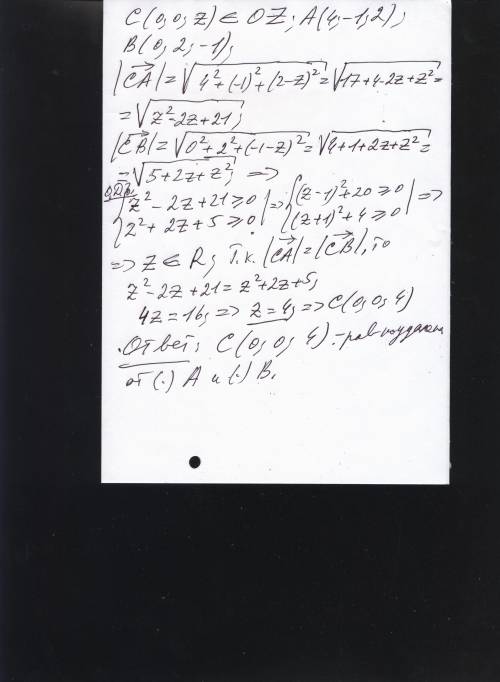 C(0,0,z) ∈ OZ; A(4,-1,2);
B(0,2,-1);
|CA| = √(4²+(-1)²+(2-z)²) = √(17+4-2z+z²) =
= √(z²-2z+21);
|CB| = √(0²+2²+(-1-z)²) = √(4+1+2z+z²) =
= √(5+2z+z²); =>
ОДЗ:
{z²-2z+21 ≥ 0 | => {(z-1)²+20 ≥ 0 | =>
{z²+2z+5 ≥ 0 | {(z+1)²+4 ≥ 0 |
=> z ∈ R; Т.к. |CA| = |CB|, то
z²-2z+21 = z²+2z+5;
4z=16; => z=4; => C(0,0,4)
Ответ: C(0,0,4) -
от (.) A и (.) B.